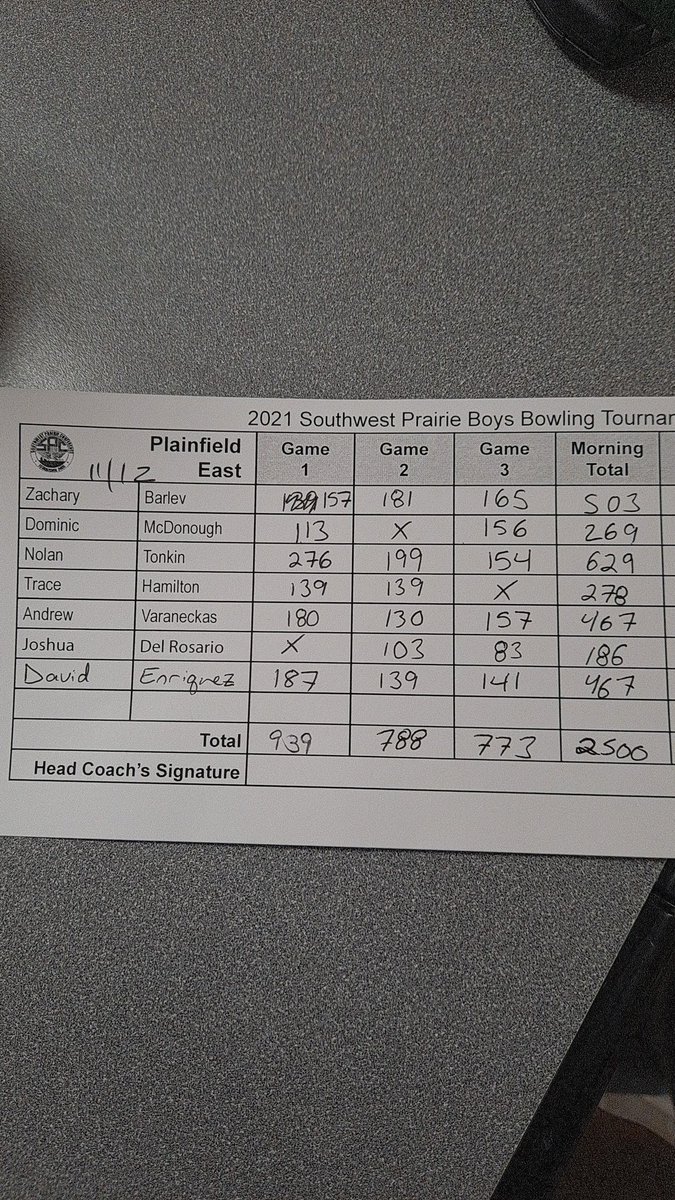 2021 Southwest Prairie Boys Bowling Tourna
SPC
Plainfield East 11/12 Game 1 Game 2 Game 3 Morning Total
Zachary Barlev 157 181 165 503
Dominic McDonough 113 X 156 269
Nolan Tonkin 276 199 154 629
Trace Hamilton 139 139 X 278
Andrew Varaneckas 180 130 157 467
Joshua Del Rosario X 103 83 186
David Enriquez 187 139 141 467
Total 939 788 773 2500
Head Coach's Signature